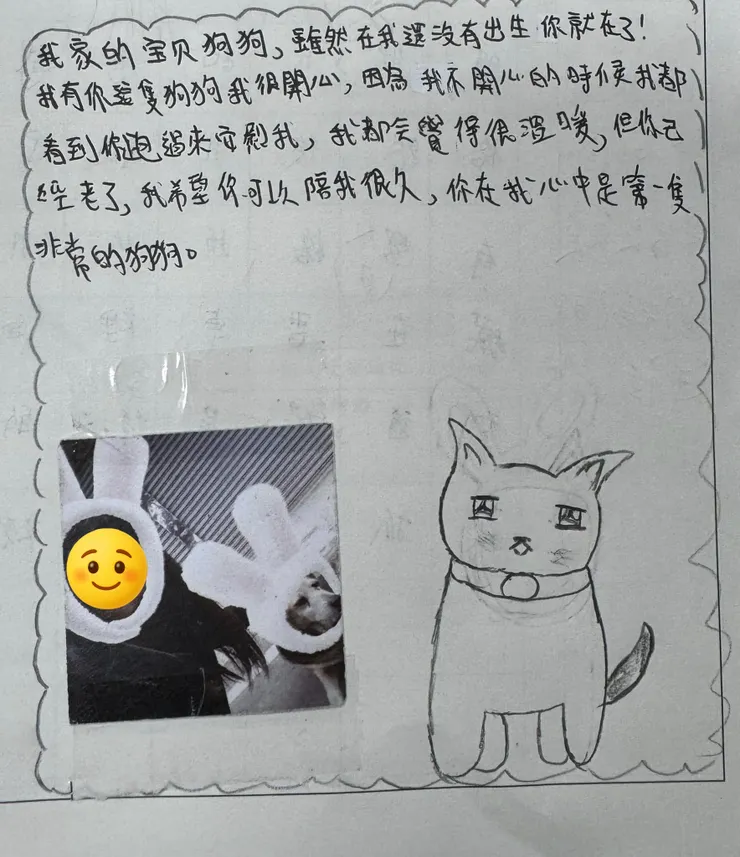 我家的宝贝狗狗，雖然在我還沒有出生你就在了！
我有你這隻狗狗我很開心，因為我不開心的時候我都
看到你跑過來安慰我，我都会覺得很溫暖，但你已
經老了，我希望你可以陪我很久，你在我心中是第一隻
非常的狗狗。